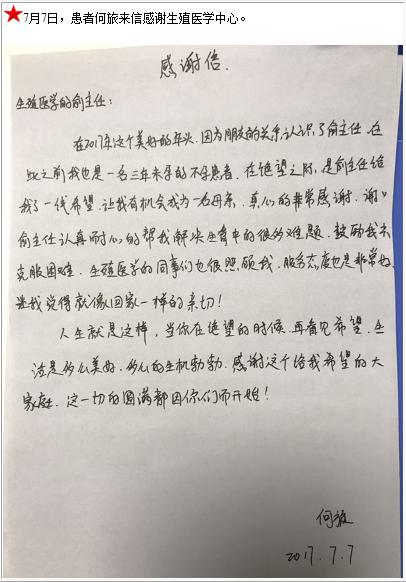 7月7日，患者何旅来信感谢生殖医学中心。
感谢信.
生殖医学的俞主任：
在2017年这个美好的年头.因为朋友的关系认识了俞主任.在
此之前我也是一名三年未孕的不孕患者.在绝望之际.是俞主任给
我了一线希望.让我有机会成为一名母亲.真心的非常感谢.谢谢
俞主任认真而耐心的帮我解决生育中的很多难题.鼓励我去
克服困难.生殖医学的同事们也很照顾我.服务态度也是非常好.
让我觉得就像回家一样的亲切!
人生就是这样,当你在绝望的时候.再看见希望.生
活是多么美好.多么的生机勃勃.感谢这个给我希望的大
家庭.这一切的圆满都因你们而开始!
何旅
2017.7.7